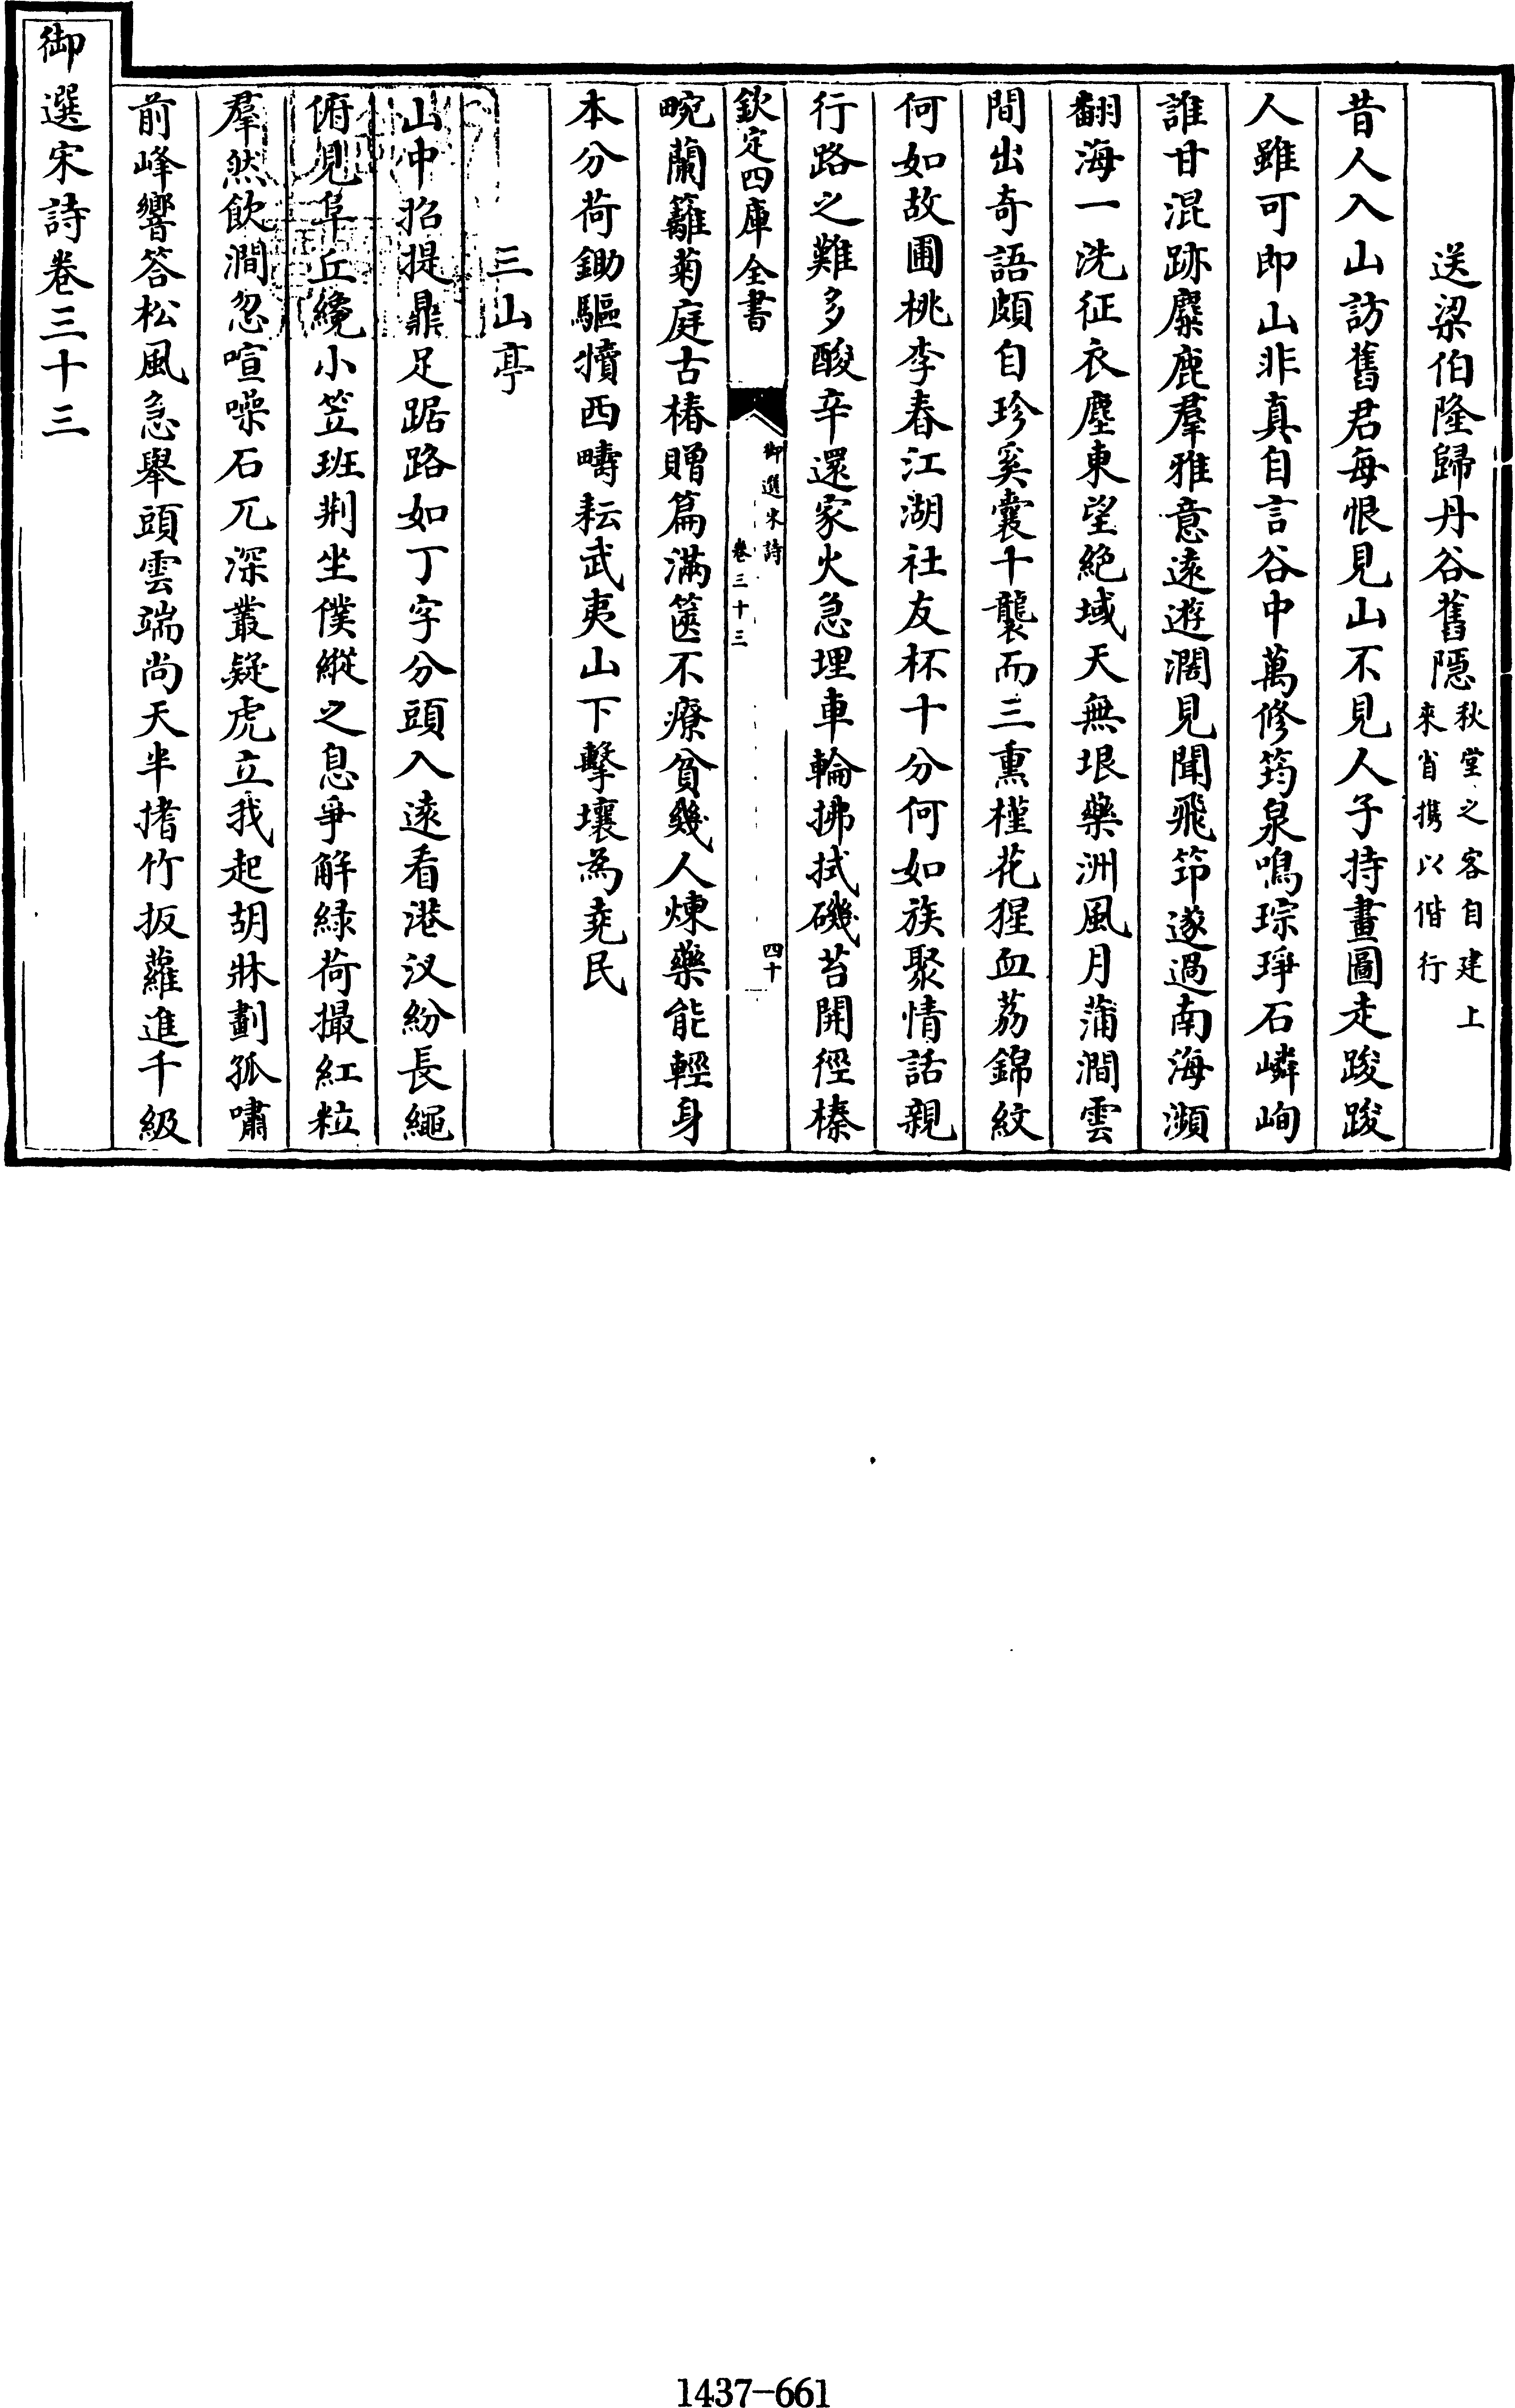 送梁伯隆歸丹谷舊隱秋堂之客自建上來省携以偕行
昔人入山訪舊君每恨見山不見人子持畫圖走踆踆
人雖可即山非真自言谷中萬修筠泉鳴琮琤石嶙峋
誰甘混跡麋鹿羣雅意遠遊濶見聞飛笻遂過南海瀕
翻海一洗征衣塵東望絶域天無垠藥洲風月蒲澗雲
間出奇語頗自珍奚囊十襲而三熏槿花猩血荔錦紋
何如故圃桃李春江湖社友杯十分何如族聚情話親
行路之難多酸辛還家火急埋車輪拂拭磯苔開徑榛
欽定四庫全書
御選宋詩
卷三十三
四十
畹蘭籬菊庭古椿贈篇滿篋不療貧幾人煉藥能輕身
本分荷鋤驅犢西疇耘武夷山下擊壤為堯民
三山亭
山中招提鼎足踞路如丁字分頭入遠看港汊紛長繩
俯見阜丘纔小笠班荆坐僕縱之息爭解緑荷撮紅粒
羣然飲澗忽喧噪石兀深叢疑虎立我起胡牀劃孤嘯
前峰響答松風急舉頭雲端尚天半揩竹扳蘿進千級
御選宋詩卷三十三
1437-661